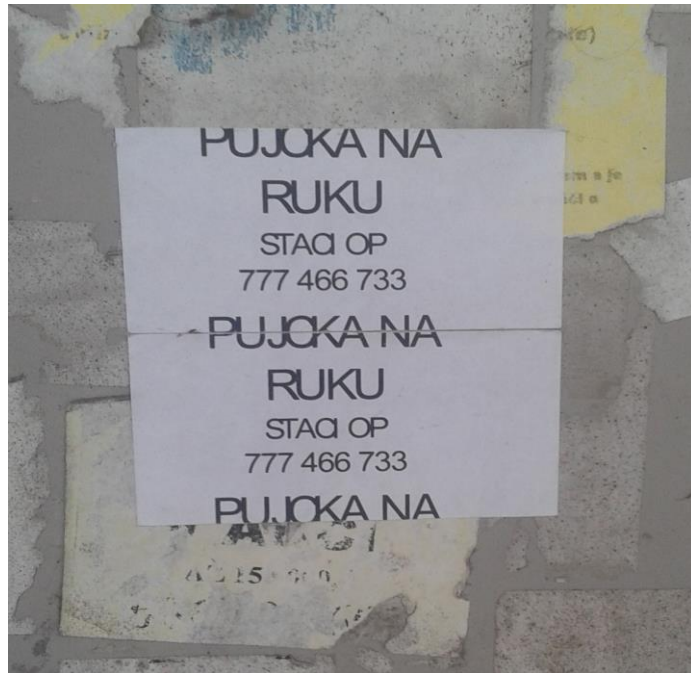 PUJCKA NA
RUKU
STACI OP
777 466 733
PUJCKA NA
RUKU
STACI OP
777 466 733
PUJCKA NA